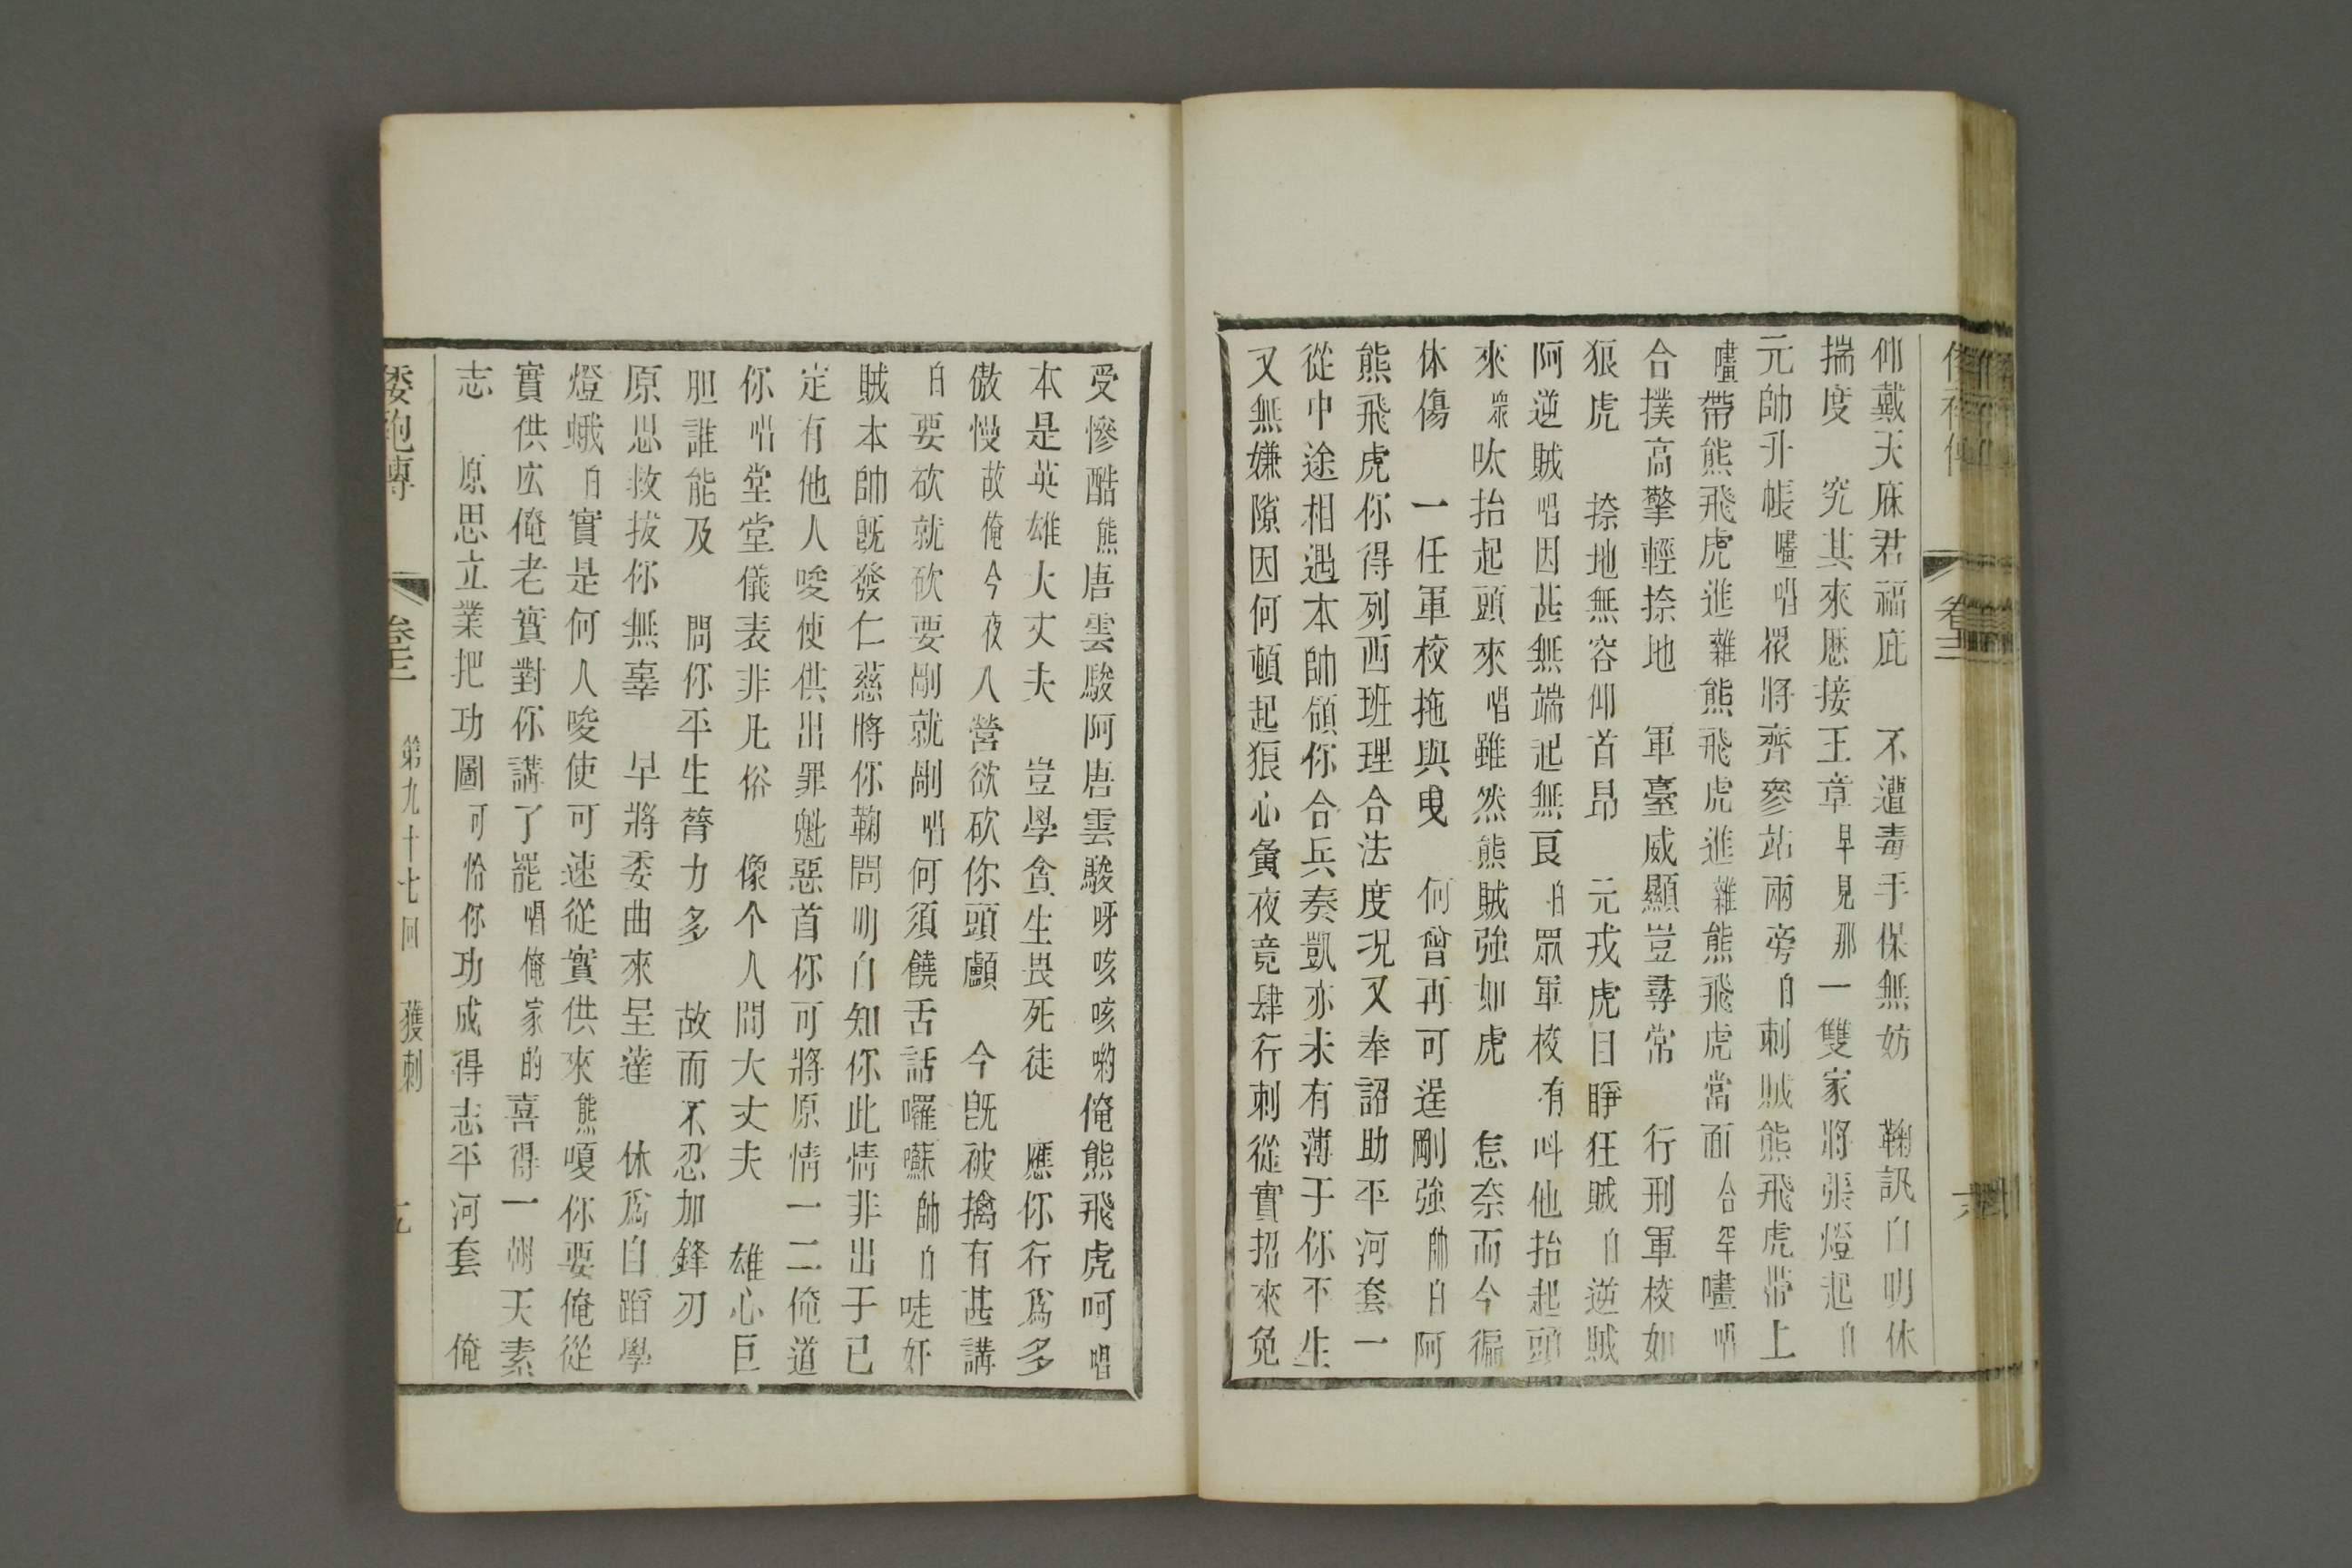 仰戴天庥君福庇　不遭毒手保無妨　鞠訊白明休
揣度　究其來歷接王章早見那一雙家將張燈起白
元帥升帳嚍唱眾將齊參站兩旁白刺賊熊飛虎帶上
嚍帶熊飛虎進雜熊飛虎進雜熊飛虎當面合罕嚍唱
合撲高擎輕捺地　軍臺威顯豈尋常　行刑軍校如
狠虎　捺地無容仰首昂　元戎虎目睜狂賊白逆賊
阿逆賊唱因甚無端起無良白眾軍校有叫他抬起頭
來眾吠抬起頭來唱雖然熊賊強如虎　怎奈而今徧
休傷　一任軍校拖與曳　何曾再可逞剛強帥白阿
熊飛虎你得列西班理合法度況又奉詔助平河套一
從中途相遇本帥領你合兵奏凱亦未有薄于你平生
又無嫌隙因何頓起狠心夤夜竟肆行刺從實招來免
受慘酷熊唐雲駿阿唐雲駿呀咳咳喲俺熊飛虎呵唱
本是英雄大丈夫　豈學貪生畏死徒　應你行爲多
傲慢故俺今夜入營欲砍你頭顱　今旣被擒有甚講
白要砍就砍要剮就剮唱何須饒舌話囉囌帥白哇奸
賊本帥旣發仁慈將你鞠問明白知你此情非出于已
定有他人唆使供出罪魁惡首你可將原情一二俺道
你唱堂堂儀表非凡俗　像个人間大丈夫　雄心巨
胆誰能及　問你平生膂力多　故而不忍加鋒刃
原思救拔你無辜　早將委曲來呈達　休爲自蹈學
燈蛾白實是何人唆使可速從實供來熊嗄你要俺從
實供広俺老實對你講了罷唱俺家的喜得一朝天素
志　原思立業把功圖可恰你功成得志平河套　俺
倭袍傳　卷十二　第九十七回　獲刺